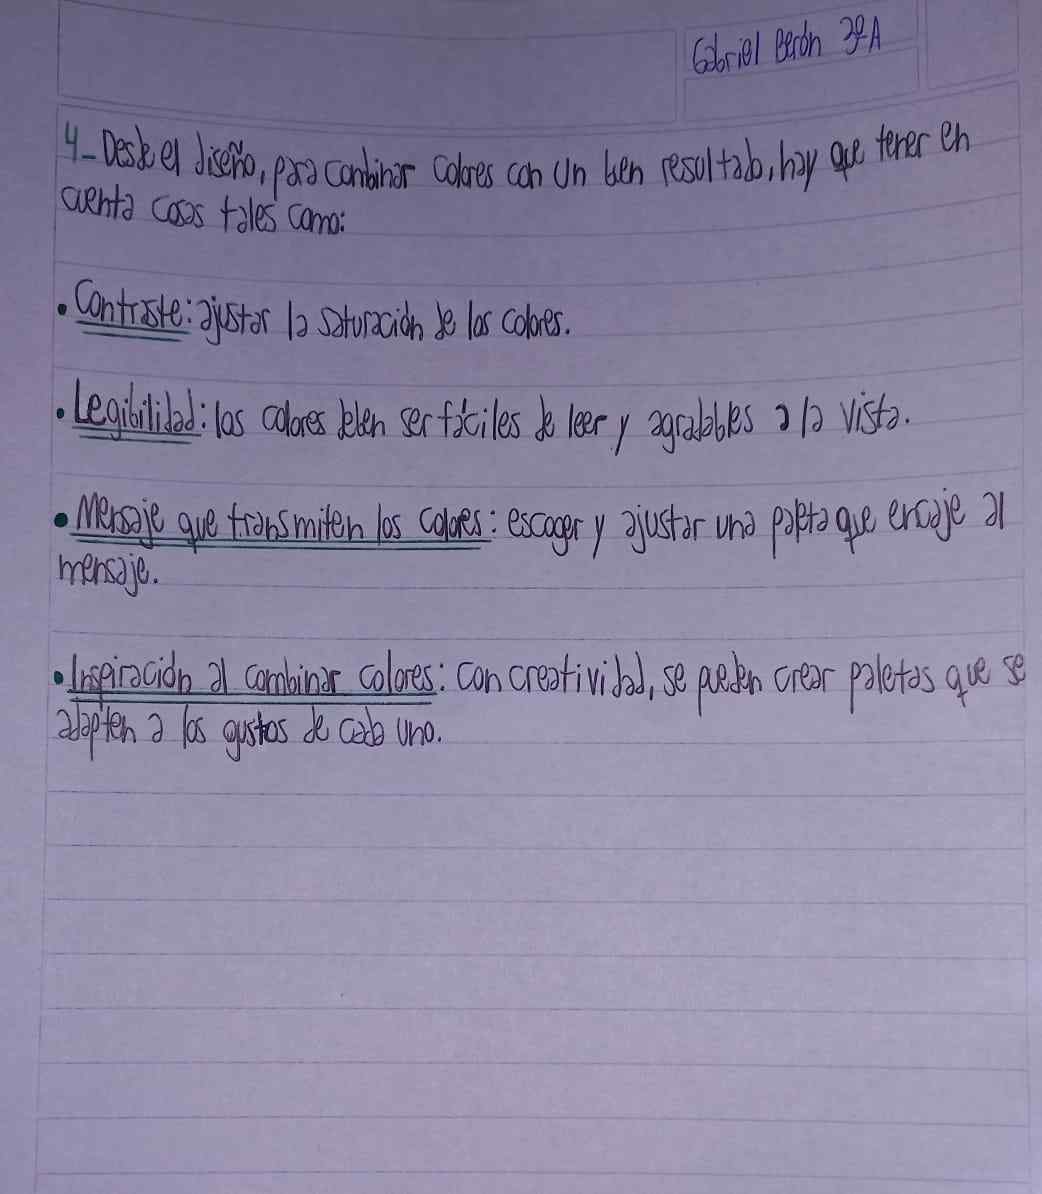 Gabriel Berón 3º A
4- Desde el diseño, para combinar colores con un buen resultado, hay que tener en
cuenta cosas tales como:
• Contraste: ajustar la saturación de los colores.
• Legibilidad: los colores deben ser fáciles de leer y agradables a la vista.
• Mensaje que transmiten los colores: escoger y ajustar una paleta que encaje al
mensaje.
• Inspiración al combinar colores: con creatividad, se pueden crear paletas que se
adapten a los gustos de cada uno.